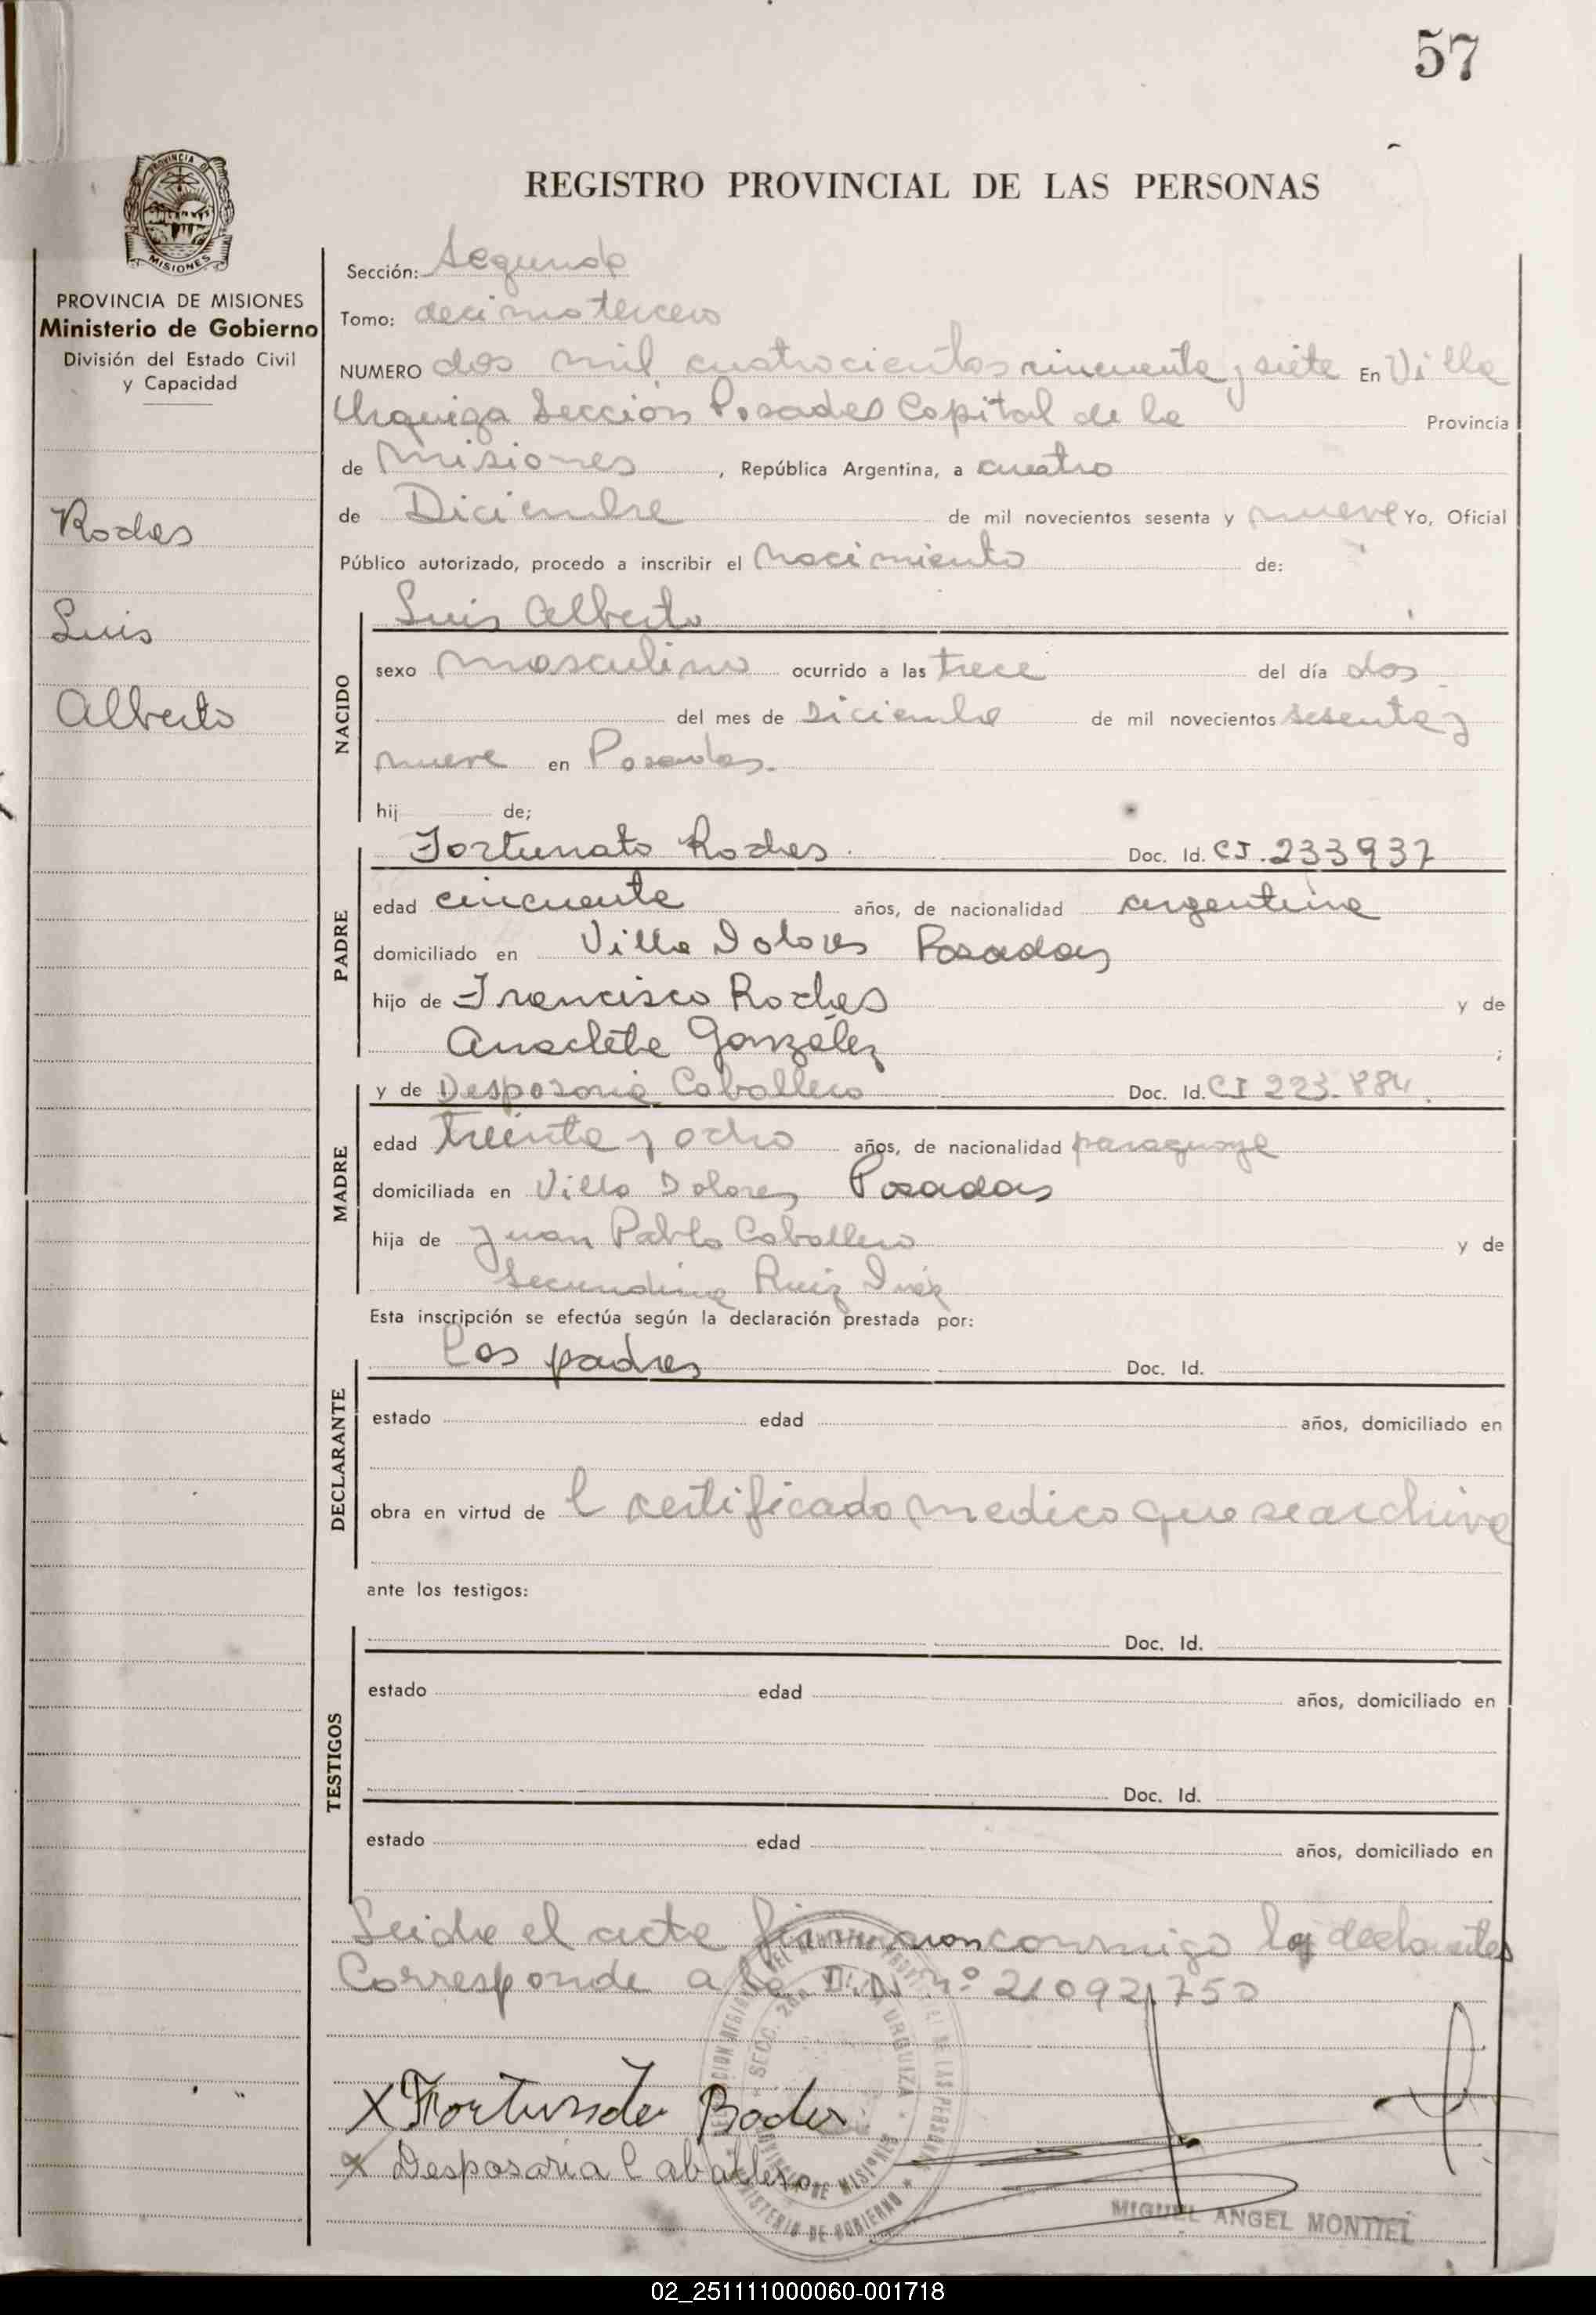 57
REGISTRO PROVINCIAL DE LAS PERSONAS
PROVINCIA DE MISIONES
Ministerio de Gobierno
División del Estado Civil
y Capacidad
Rodas
Luis
Alberto
Sección: Segunda
Tomo: decimo tercero
NUMERO dos mil cuatrocientos cincuenta y siete En Villa
Urquiza Sección Posadas Capital de la Provincia
de Misiones, República Argentina, a cuatro
de Diciembre de mil novecientos sesenta y nueve Yo, Oficial
Público autorizado, procedo a inscribir el Nacimiento de:
Luis Alberto
NACIDO
sexo masculino ocurrido a las trece del día dos
del mes de Diciembre de mil novecientos sesenta y
nueve en Posadas.
hij de;
Fortunato Rodas. Doc. Id. CI. 233937
PADRE
edad cincuenta años, de nacionalidad argentina
domiciliado en Villa Dolores Posadas
hijo de Francisco Rodas y de
Anacleta González ;
y de Desposoria Caballero Doc. Id. CI 223.884.
MADRE
edad treinta y ocho años, de nacionalidad paraguaya
domiciliada en Villa Dolores Posadas
hija de Juan Pablo Caballero y de
Secundina Ruiz Diaz
Esta inscripción se efectúa según la declaración prestada por:
los padres Doc. Id.
DECLARANTE
estado edad años, domiciliado en
obra en virtud de l certificado medico que se archiva
ante los testigos:
Doc. Id.
TESTIGOS
estado edad años, domiciliado en
Doc. Id.
estado edad años, domiciliado en
Leida el acta firmaron conmigo los declarantes
Corresponde a la D.N. nº 21092750
X Fortunato Rodas
X Desposoria Caballero
MIGUEL ANGEL MONTIEL
02_251111000060-001718